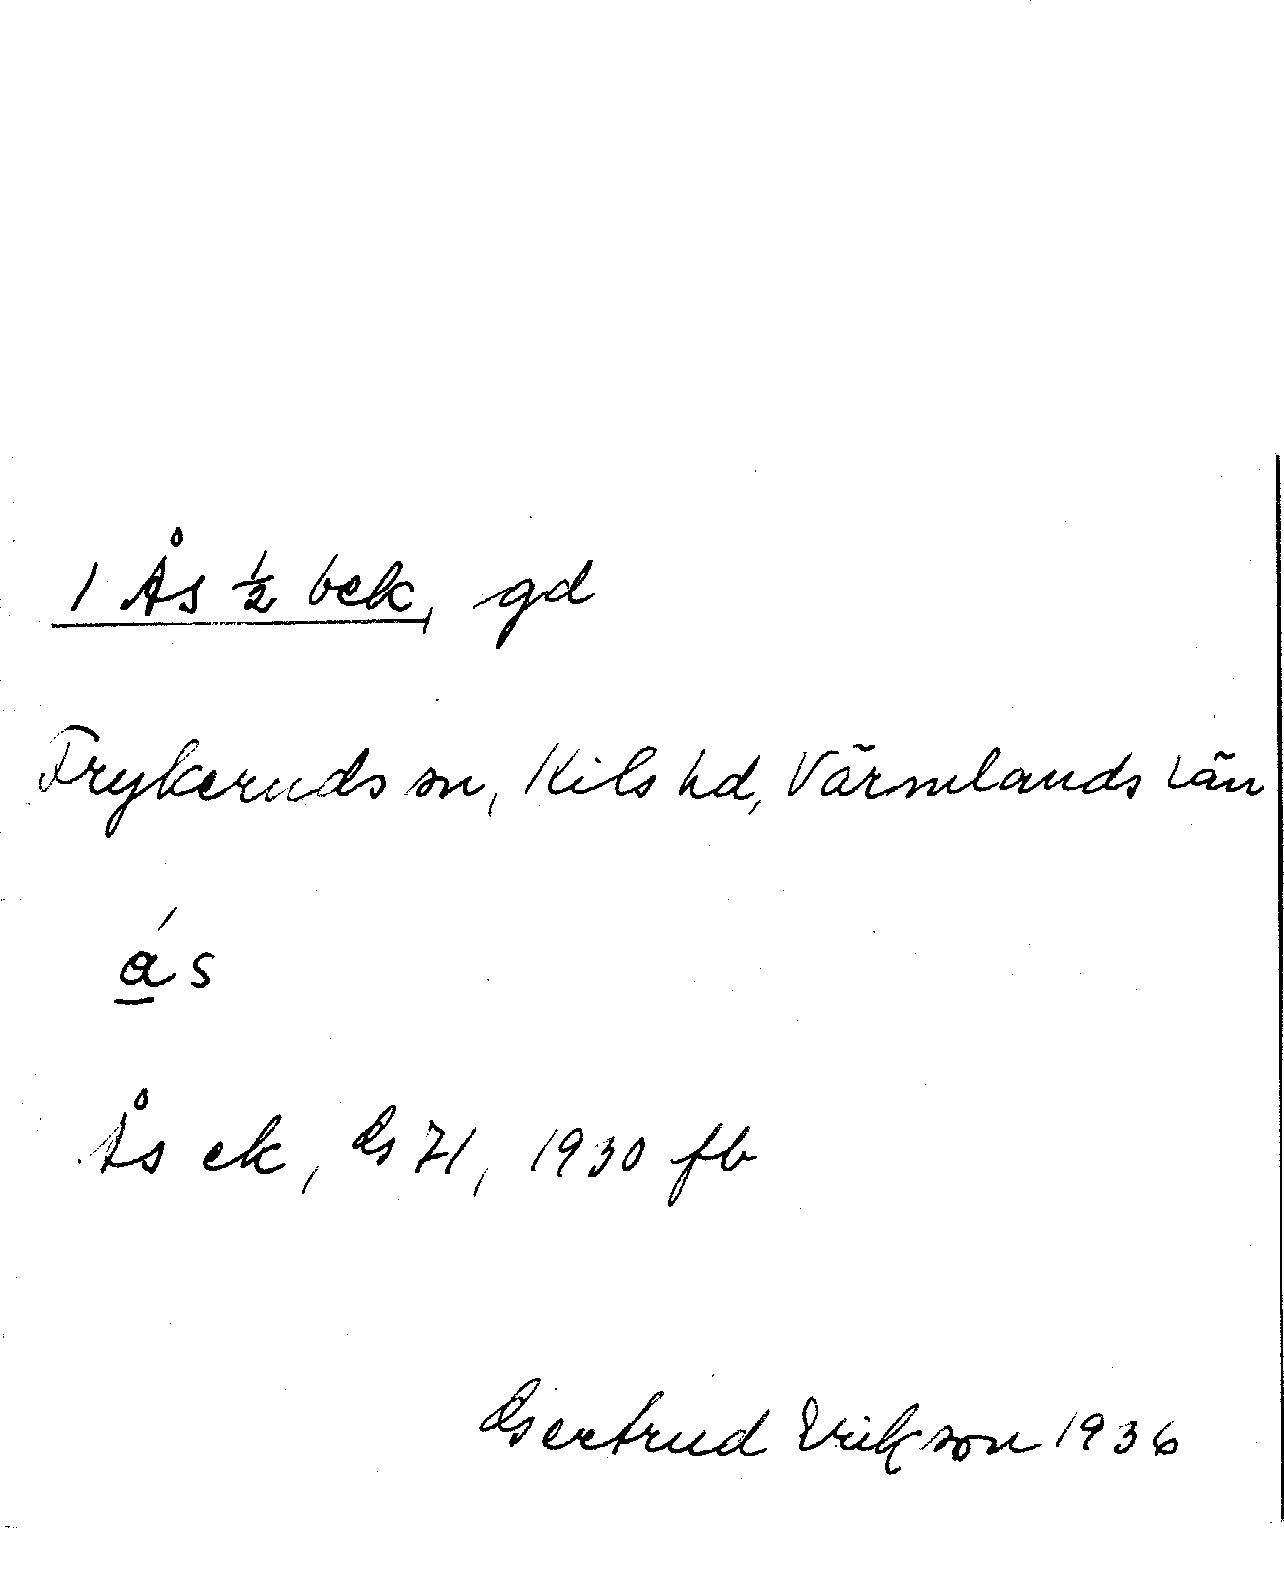 1 Ås ½ bek, gd
Frykeruds sn, Kils hd, Värmlands län
ás
Ås ek, Gs 71, 1930 fb
Gertrud Erikson 1936